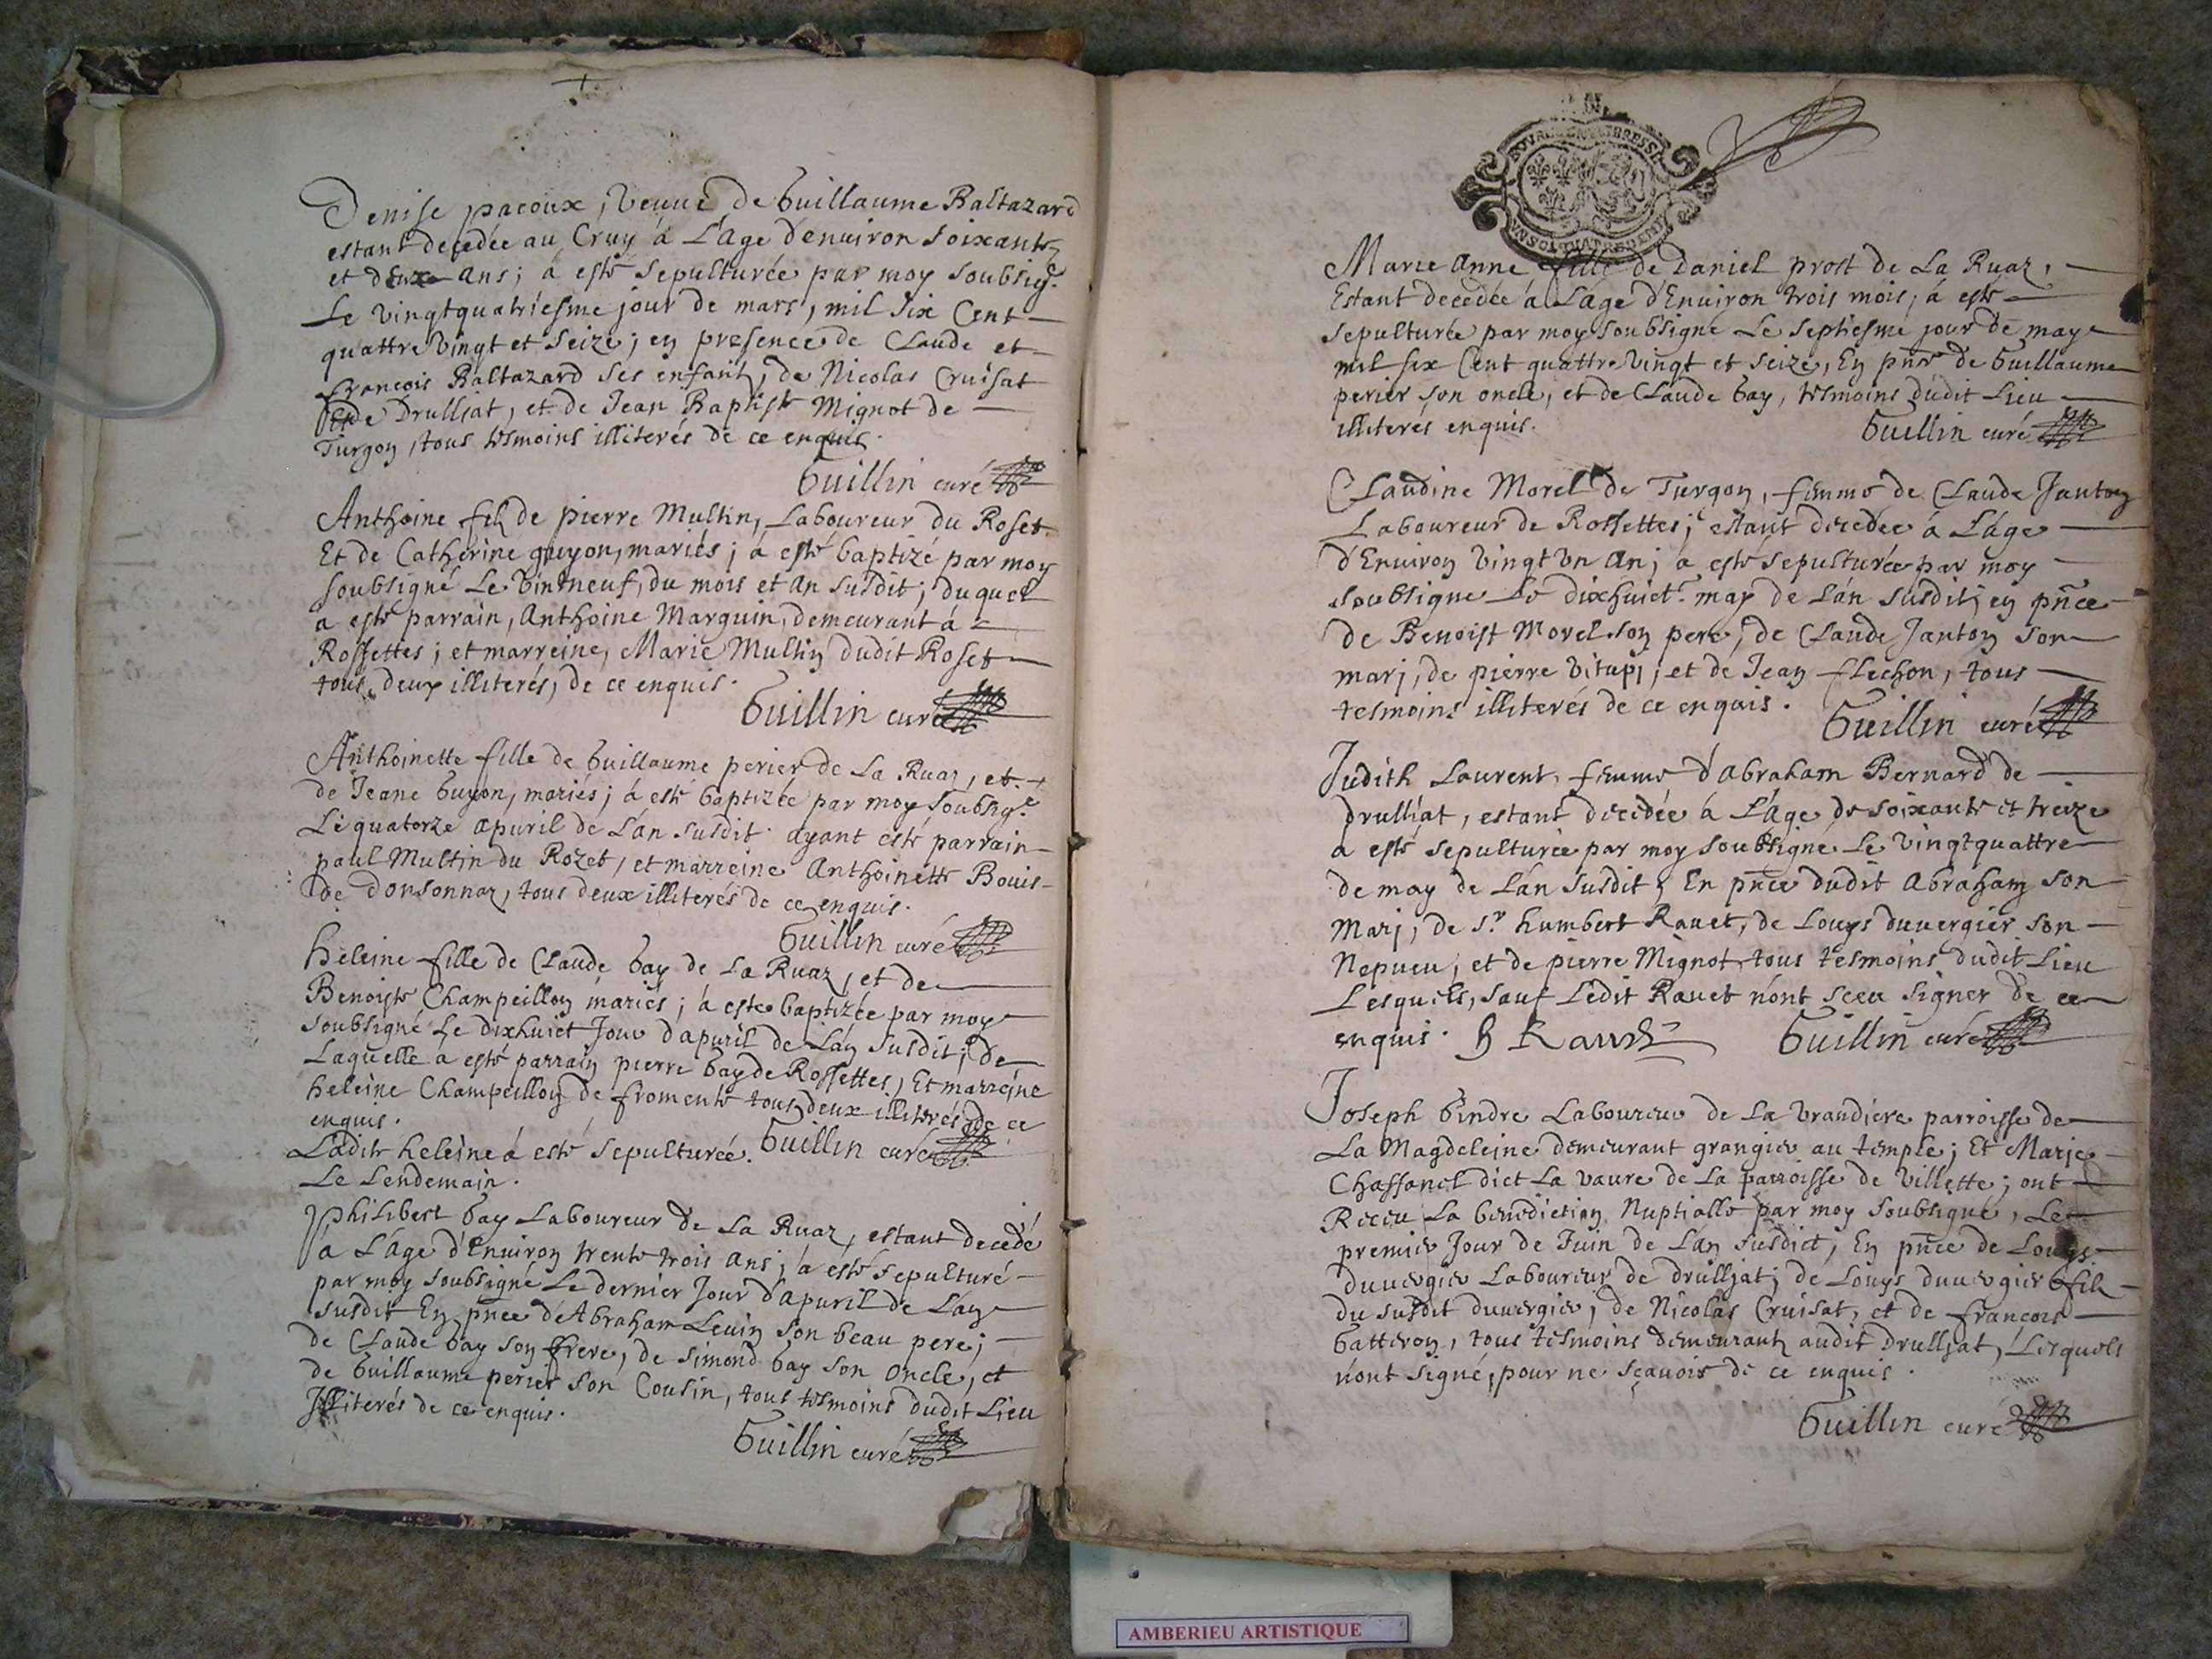 Denise pacoux, veuue de Guillaume Baltazard
estant decedée au Cruy á L'Age d'enuiron soixante
et deux ans; á esté sepulturée par moy soubsig.é
Le vingtquatriesme jour de mars, mil six Cent
quattre vingt et seize; en presence de Claude et
francois Baltazard ses enfants, de Nicolas Cruisat
de Drulliat, et de Jean Baptiste Mignot de
Turgon, tous tesmoins illiterés de ce enquis.
Guillin curé
Anthoine fils de pierre Multin, Laboureur du Roset
Et de Catherine guyon, mariés; á esté baptizé par moy
soubsigné Le vintneuf, du mois et an susdit; duquel
a esté parrain, Anthoine Marguin, demeurant á
Rossettes; et marreine, Marie Multin dudit Roset
tous deux illiterés, de ce enquis.
Guillin curé
Anthoinette fille de Guillaume perier de La Ruaz, et
de Jeane Guyon, mariés; á esté baptizée par moy soubsig.é
Le quatorze apuril de L'an susdit. ayant esté parrain
paul Multin du Rozet, et marreine Anthoinette Bouis
de Donsonnaz, tous deux illiterés de ce enquis.
Guillin curé
heleine fille de Claude bay de La Ruaz, et de
Benoiste Champeillon mariés; á este baptizée par moy
soubsigné Le dixhuict Jour d'apuril de L'an susdit; de
Laquelle a esté parrain pierre bay de Rossettes, Et marreine
heleine Champeillon de fromente tous deux illiterés de ce
enquis.
Ladite heleine á esté sepulturée. Guillin curé
Le Lendemain.
Philibert bay Laboureur de La Ruaz, estant decedé
á L'age d'Enuiron trente trois ans; á esté sepulturé
par moy soubsigné Le dernier Jour d'apuril de L'an
susdit En pnce d'Abraham Leuin son beau pere;
de Claude bay son frere, de simond bay son oncle, et
de Guillaume perier son Cousin, tous tesmoins dudit Lieu
Illiterés de ce enquis.
Guillin curé
Marie anne fille de Daniel prost de La Ruaz,
Estant decedée á L'áge d'Enuiron trois mois; á esté
sepulturée par moy soubsigné Le septiesme jour de may
mil six Cent quattre vingt et seize, En pnce de Guillaume
perier son oncle, et de Claude bay, tesmoins dudit Lieu
illiterés enquis.
Guillin curé
Claudine Morel de Turgon, femme de Claude Janton
Laboureur de Rossettes; estant decedée á L'áge
d'Enuiron vingt vn an; á esté sepulturée par moy
soubsigné Le dixhuict.e may de L'án susdit, en pnce
de Benoist Morel son pere, de Claude Janton son
marj, de pierre vitupj, et de Jean flechon, tous
tesmoins illiterés de ce enquis.
Guillin curé
Judith Laurent, femme d'abraham Bernard de
drulliat, estant decedée á L'Age de soixante et treize
á esté sepulturée par moy soubsigné Le vingtquattre
de may de L'an susdit, En pnce dudit Abraham son
Marj, de s.r humbert Rauet, de Louys duuergier son
Nepueu, et de pierre Mignot tous tesmoins dudit Lieu
Lesquels, sauf Ledit Rauet n'ont sceu signer de ce
enquis. h Rauet Guillin curé
Joseph Gindre Laboureur de La vrandiere parroisse de
La Magdeleine demeurant grangier au temple; Et Marie
Chaffanel dict La vaure de La parroisse de villette; ont
Receu La benediction Nuptialle par moy soubsigné, Le
premier Jour de Juin de L'an susdict, En pnce de Louys
duuergier Laboureur de drulljat; de Louys duuergier fils
du susdit duuergier, de Nicolas Cruisat, et de francois
batteron, tous tesmoins demeurants audit Drulljat, Lesquels
n'ont signé, pour ne sçauoir de ce enquis.
Guillin curé
AMBERIEU ARTISTIQUE